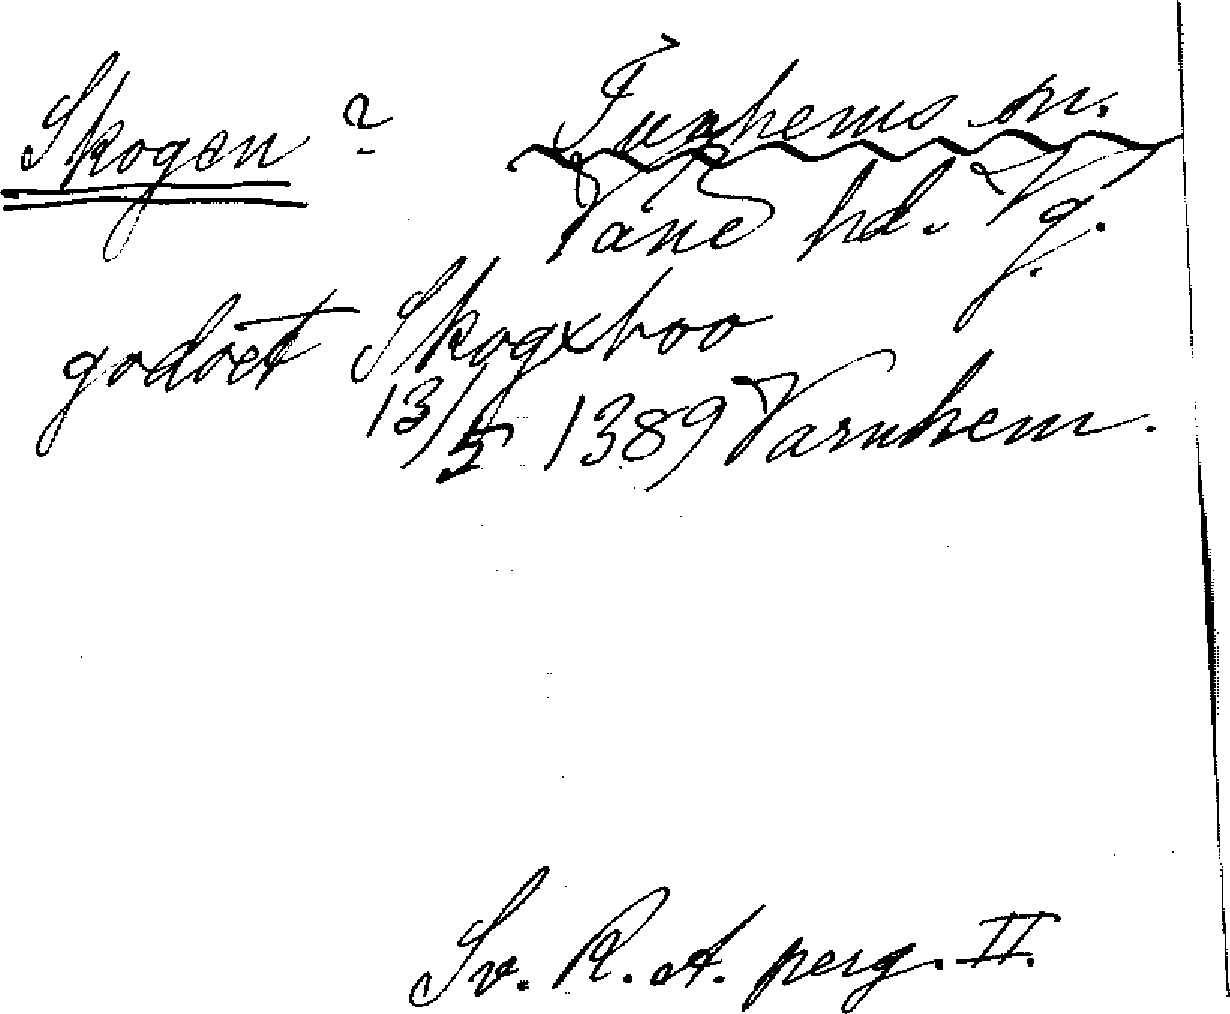 Skogen ? Tunhems sn.
Väne hd. Vg.
godoet Skogxboo
13/5 1389 Varnhem.
Sv. R. A. perg. II.